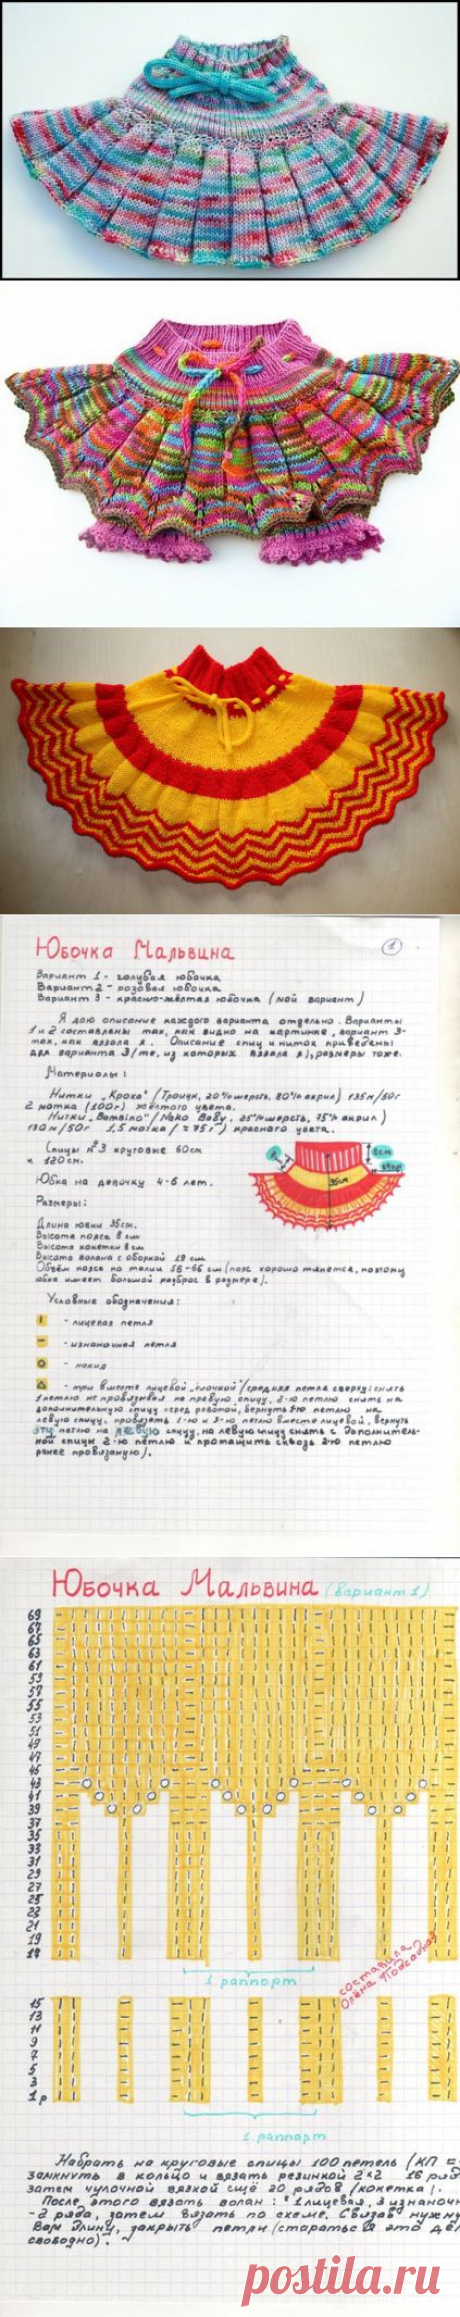 Юбочка Мальвина
1
Вариант 1 - голубая юбочка
Вариант 2 - розовая юбочка
Вариант 3 - красно-жёлтая юбочка (мой вариант)
Я даю описание каждого варианта отдельно. Варианты
1 и 2 составлены так, как видно на картинке, вариант 3-
так, как вязала я. Описание спиц и ниток приведены
для варианта 3 (те, из которых вязала я), размеры тоже.
Материалы:
Нитки "Кроха" (Троицк, 20% шерсть, 80% акрил) 135м/50г
2 мотка (100г) жёлтого цвета.
Нитки "Bambino" (Nako Baby, 25% шерсть, 75% акрил)
130м/50г 1,5 мотка (≈75г) красного цвета.
Спицы №3 круговые 60см
и 120см.
Юбка на девочку 4-6 лет.
Размеры:
8см
35см
Длина юбки 35см.
Высота пояса 8см
Высота кокетки 8см
Высота волана с оборкой 19см
Объём пояса по талии 56-66см (пояс хорошо тянется, поэтому
юбка имеет большой разброс в размере).
Условные обозначения:
- лицевая петля
- изнаночная петля
- накид
- три вместе лицевой "ёлочкой" (средняя петля сверху: снять
1 петлю не провязывая на правую спицу, 2-ю петлю снять на
дополнительную спицу перед работой, вернуть 1-ю петлю на
левую спицу, провязать 1-ю и 3-ю петлю вместе лицевой, вернуть
эту петлю на левую спицу, на левую спицу снять с дополнитель-
ной спицы 2-ю петлю и протащить сквозь 2-ю петлю
ранее провязанную).
Юбочка Мальвина (вариант 1)
69
67
65
63
61
59
57
55
53
51
49
47
45
43
41
39
37
35
33
31
29
27
25
23
21
19
17
1 раппорт
составила
Олёна
15
13
11
9
7
5
3
1р
1 раппорт
Набрать на круговые спицы 100 петель (КП =
замкнуть в кольцо и вязать резинкой 2×2 16 ряд
затем чулочной вязкой ещё 20 рядов (кокетка).
После этого вязать волан: *1 лицевая, 3 изнаноч
-2 ряда, затем вязать по схеме. Связав нужну
Вам длину, закрыть петли (стараться это дел
свободно).
postila.ru